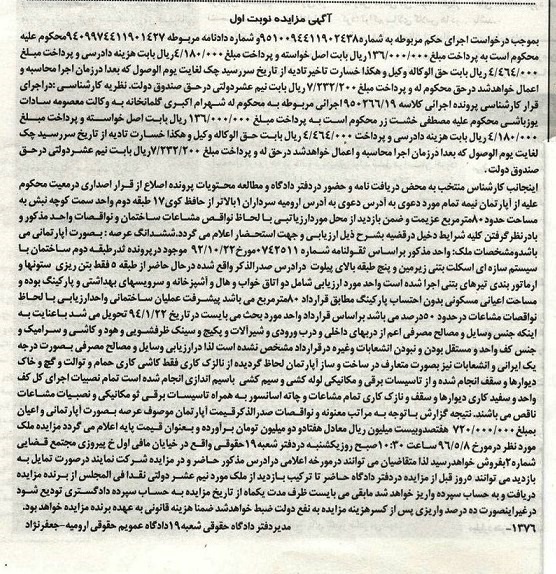 آگهی مزایده نوبت اول
بموجب درخواست اجرای حکم مربوطه به شماره ۹۵۱۰۰۹۴۴۱۱۹۰۲۴۳۸ و شماره دادنامه مربوطه ۹۴۰۹۹۷۴۴۱۱۹۰۱۴۲۷
محکوم است به پرداخت مبلغ ۱۳۶/۰۰۰/۰۰۰ریال بابت اصل خواسته و پرداخت مبلغ ۴/۱۸۰/۰۰۰ریال بابت هزینه دادرسی و پرداخت مبلغ
۴/۴۶۴/۰۰۰ ریال بابت حق الوکاله وکیل و هکذا خسارت تاخیر تادیه از تاریخ سررسید چک لغایت یوم الوصول که بعدا درزمان اجرا محاسبه و
اعمال خواهدشد در حق محکوم له و پرداخت مبلغ ۷/۲۳۲/۲۰۰ریال بابت نیم عشردولتی درحق صندوق دولت. نظریه کارشناسی :دراجرای
قرار کارشناسی پرونده اجرائی کلاسه ۹۵۰۲۶۶/۱۹ اجرائی مربوطه به محکوم له شهرام اکبری گلمانخانه به وکالت معصومه سادات
یوزباشی محکوم علیه مصطفی خشت زر محکوم است به پرداخت مبلغ ۱۳۶/۰۰۰/۰۰۰ریال بابت اصل خواسته و پرداخت مبلغ
۴/۱۸۰/۰۰۰ریال بابت هزینه دادرسی و پرداخت ۴/۴۶۴/۰۰۰ ریال بابت حق الوکاله وکیل و هکذا خسارت تادیه از تاریخ سررسید چک
لغایت یوم الوصول که بعدا درزمان اجرا محاسبه و اعمال خواهدشد در حق له و پرداخت مبلغ ۷/۲۳۲/۲۰۰ریال بابت نیم عشردولتی درحق
صندوق دولت .
اینجانب کارشناس منتخب به محض دریافت نامه و حضور دردفتر دادگاه و مطالعه محتویات پرونده اصلاع از قرار اصداری درمعیت محکوم
علیه از آپارتمان نیمه تمام مورد دعوی به آدرس دعوی به آدرس ارومیه سرداران ۱بالاتر از حافظ کوی۱۷ طبقه دوم واحد سمت کوچه نبش به
مساحت حدود ۸۰مترمربع عزیمت و ضمن بازدید از محل موردارزیابی با لحاظ نواقص مشاعات ساختمان و نواقصات واحد مذکور و
بادرنظر گرفتن کلیه شرایط دخیل درقضیه بشرح ذیل ارزیابی و جهت استحضار اعلام می گردد.ششدانگ عرصه : بصورت آپارتمانی می
باشدومشخصات ملک: واحد مذکور براساس تقولنامه شماره ۰۷۴۲۵۱۱مورخ ۹۲/۱۰/۲۲ موجود درپرونده قدرطبقه دوم ساختمان با
سیستم سازه ای اسکلت بتنی زیرمین و پنج طبقه بالای پیلوت درادرس صدرالذکر واقع شده درحال حاضر از طبقه ۵ فقط بتن ریزی ستونها و
ارماتور بندی تیرهای بتنی اجرا شده است واحد مورد ارزیابی شامل دو اتاق خواب و هال و آشپزخانه و سرویسهای بهداشتی و پارکینگ بوده و
مساحت اعیانی مسکونی بدون احتساب پارکینگ مطابق قرارداد ۸۰مترمربع می باشد پیشرفت عملیان ساختمانی واحدارزیابی با لحاظ
نواقصات مشاعات درحدود ۵۰درصد می باشد براساس قرارداد واحد مورد بحث می بایست در تاریخ ۹۴/۱/۲۲ تحویل می شد باعنایت به
اینکه جنس وسایل و مصالح مصرفی اعم از دربهای داخلی و درب ورودی و شیرآلات و پکیج و سینک ظرفشویی و هود و کاشی و سرامیک و
جنس کف واحد و مستقل بودن و نبودن انشعابات وغیره درقرارداد مشخص نشده است لذا درارزیابی وسایل و مصالح مصرفی بصورت درجه
یک ایرانی و انشعابات نیز بصورت متعارف در ساخت و ساز آپارتمان لحاظ گردیده از نازک کاری فقط کاشی کاری حمام و توالت و گچ و خاک
دیوارها و سقف انجام شده و از تاسیسات برقی و مکانیکی لوله کشی و سیم کشی باسیم اندازی انجام شده است تمام نصبیات اجرای کل کف
واحد و سفید کاری دیوارها و سقف و نازک کاری تمام مشاعات و چاته اسانسور به همراه تاسیسات برقی ئو مکانیکی و نصبیات مشاعات
ناقص می باشند. نتیجه گزارش باتوجه به مراتب معنونه و نواقصات صدرالذکرقیمت آپارتمان موصوف عرصه بصورت آپارتمانی و اعیان
بمبلغ ۷۲۰/۰۰۰/۰۰۰ هفتصدوبیست میلیون ریال معادل هفتادو دو میلیون تومان برآورده و بعنوان قیمت پایه اعلام می گردد مزایده ملک
مورد نظر درمورخ ۹۶/۵/۸ ساعت ۱۰:۳۰صبح روزیکشنبه دردفتر شعبه ۱۹حقوقی واقع در خیابان مافی اول خ پیروزی مجتمع قضایی
شماره ۲بفروش خواهدرسید لذا متقاضیان می توانند درمورخه اعلامی درادرس مذکور حاضر و در مزایده شرکت نمایند درصورت تمایل به
بازدید می توانند ۵روز قبل از مزایده دردفتر دادگاه حاضر تا ترکیب بازدید از ملک مورد نیم عشر دولتی نقدا فی المجلس از برنده مزایده
دریافت و به حساب سپرده واریز خواهد شد مابقی می بایست ظرف مدت یکماه از تاریخ مزایده به حساب سپرده دادگستری تودیع شود
درغیراینصورت ده درصد واریزی پس از کسرهزینه مزایده به نفع دولت ضبط خواهدشد ضمنا هزینه قانونی به عهده برنده مزایده خواهد بود.
۱۳۷۶– مدیردفتر دادگاه حقوقی شعبه ۱۹دادگاه عمویم حقوقی ارومیه-جعفرنژاد